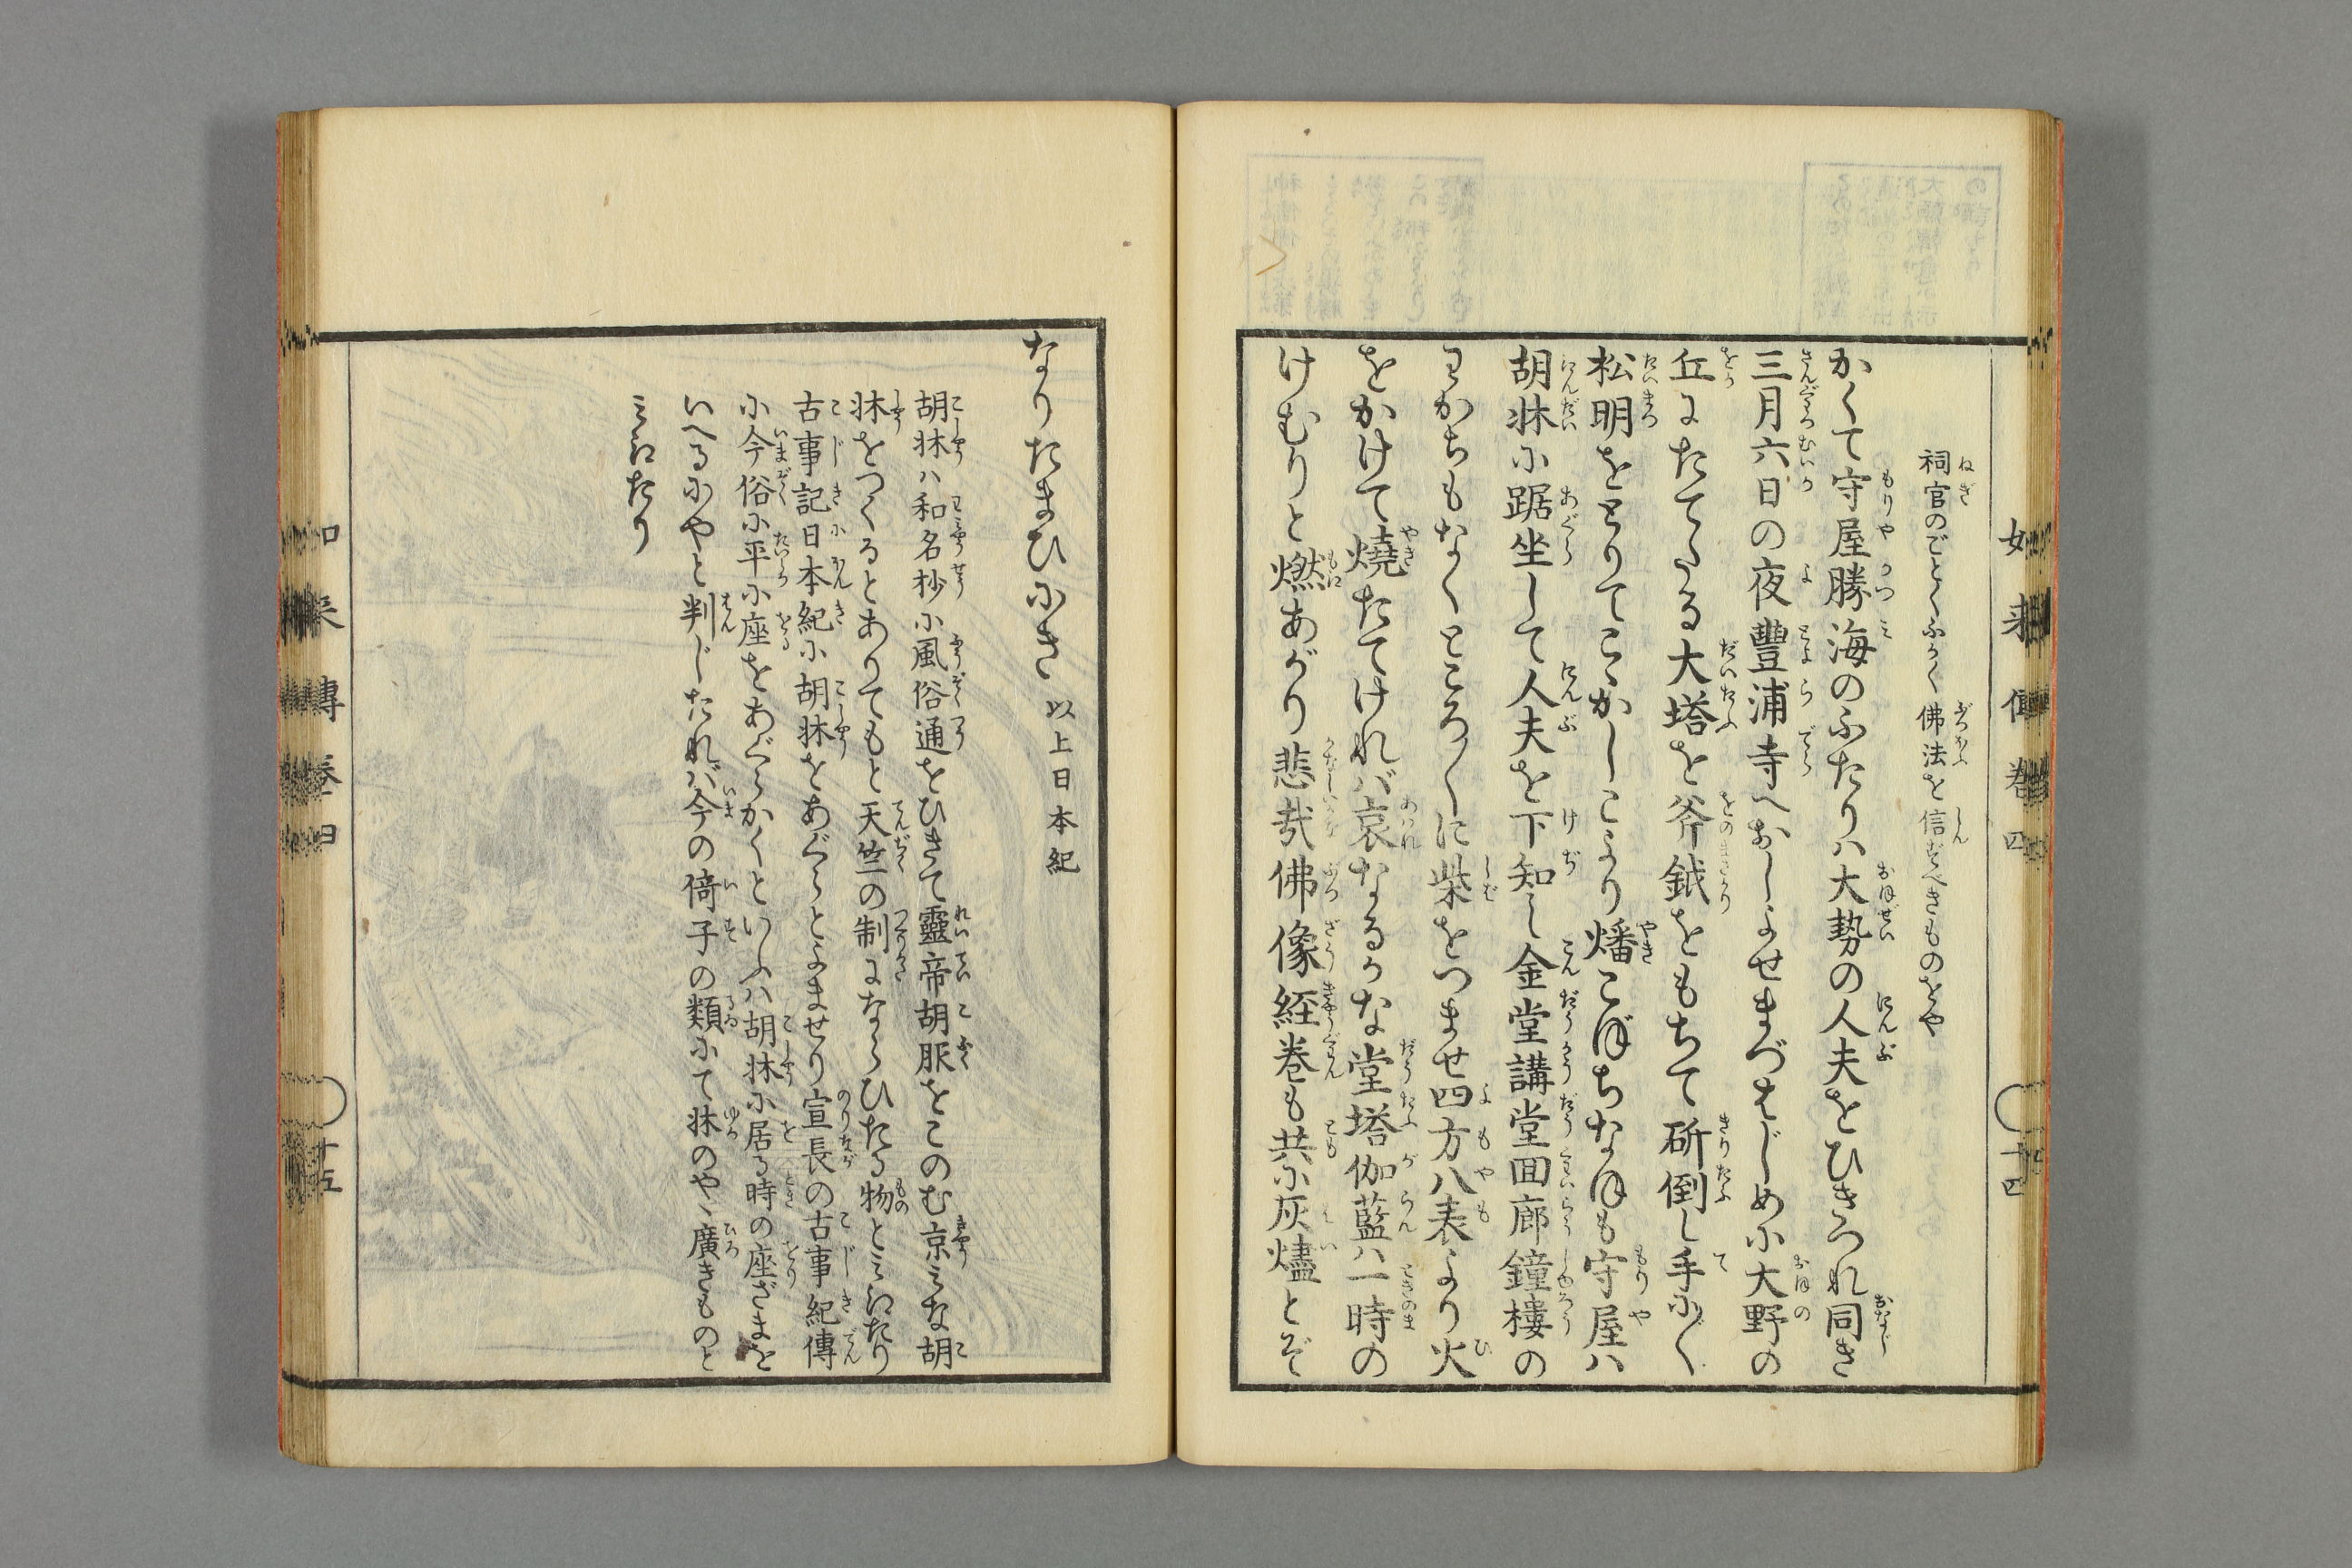 祠官のごとくふかく佛法を信ずべきものをや
かくて守屋勝海のふたりハ大勢の人夫をひきつれ同き
三月六日の夜豐浦寺へおしよせまづはじめに大野の
丘にたてたる大塔を斧鉞をもちて斫倒し手に〱
松明をとりてこゝかしこより燔こぼちなほも守屋ハ
胡床に踞坐して人夫を下知し金堂講堂回廊鐘樓の
わかちもなくところ〱に柴をつませ四方八表より火
をかけて燒たてけれバ哀なるかな堂塔伽藍ハ一時の
けむりと燃あがり悲哉佛像経巻も共に灰燼とぞ
如来傳巻四
十四
なりたまひにき 以上日本紀
胡牀ハ和名抄に風俗通をひきて靈帝胡服をこのむ京ミな胡
牀をつくるとありてもと天竺の制にならひたる物とミえたり
古事記日本紀に胡牀をあぐらとよませり宣長の古事紀傳
に今俗に平に座をあぐらかくといふハ胡牀に居る時の座ざまを
いへるにやと判じたれバ今の倚子の類にて牀のやゝ廣きものと
ミえたり
如来傳巻四
十五